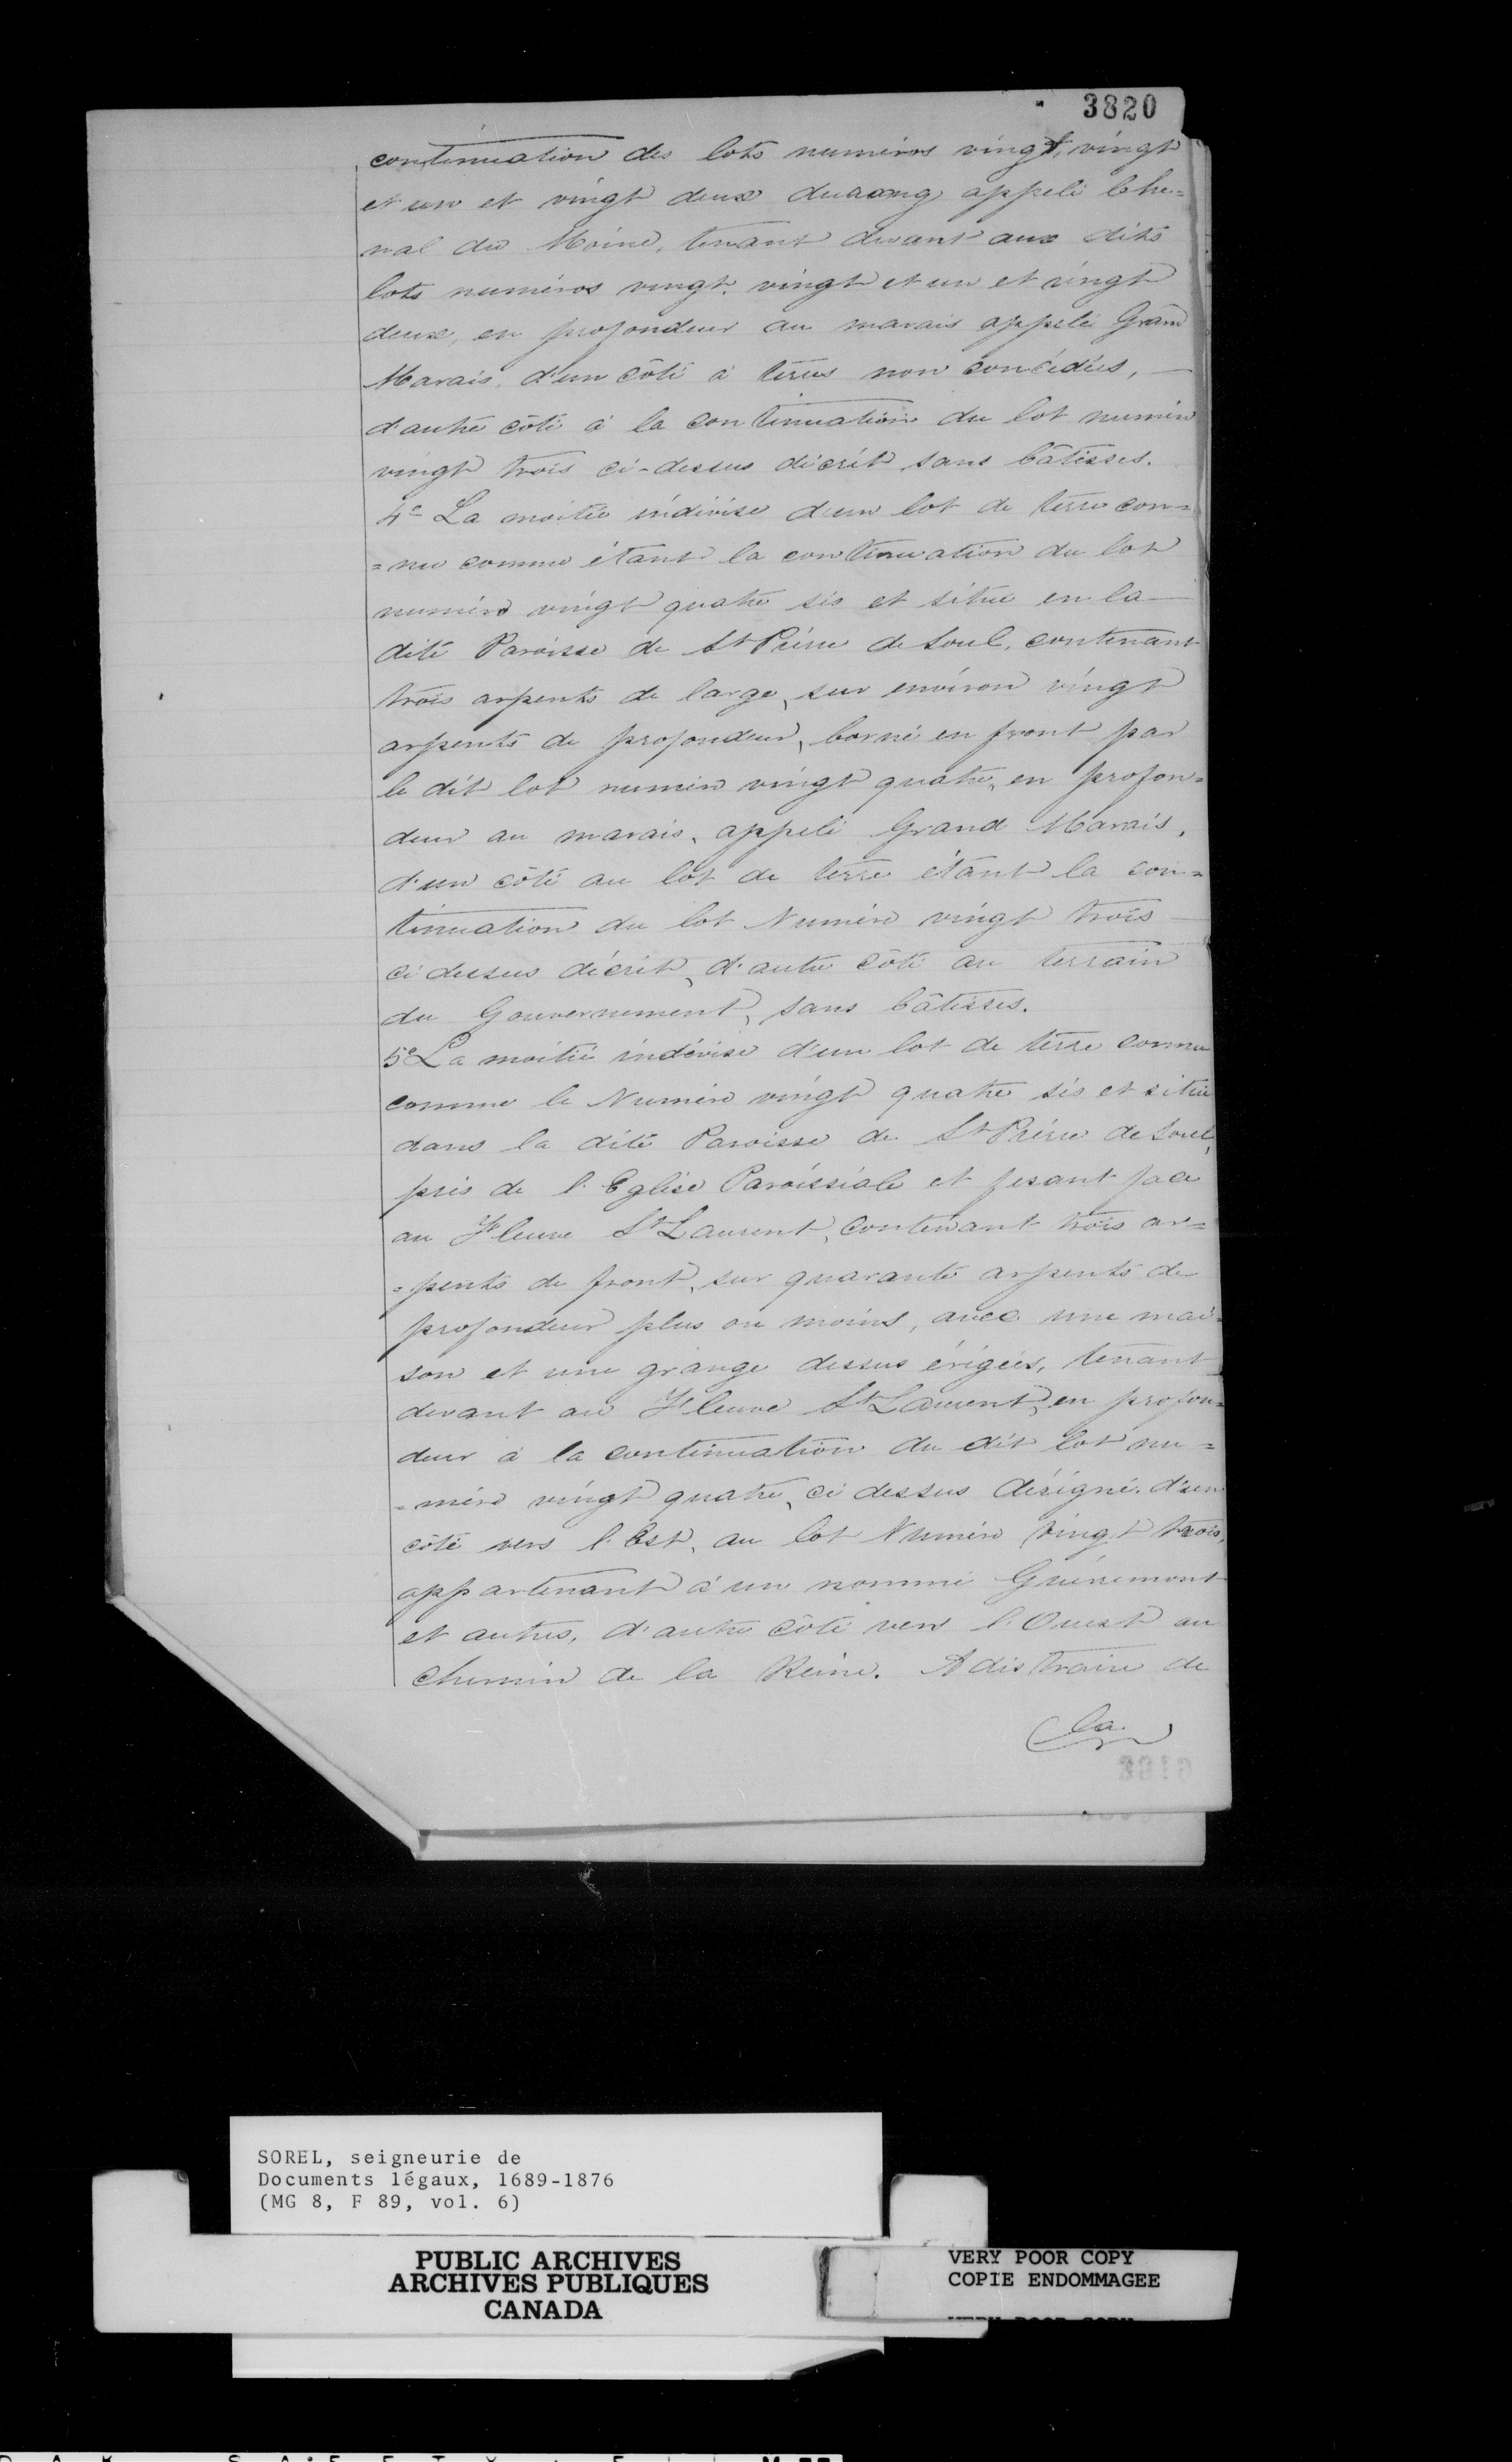 3820
continuation des lots numéros vingt, vingt
et un et vingt deux du rang appelé Che=
nal du Moine, tenant devant aux dits
lots numéros vingt, vingt et un et vingt
deux, en profondeur au marais appelé Grand
Marais, d'un côté à terres non concédées, —
d'autre côté à la continuation du lot numéro
vingt trois ci-dessus décrit sans bâtisses.
4e La moitié indivise d'un lot de terre con=
=nu comme étant la continuation du lot
numéro vingt quatre sis et situé en la —
dite Paroisse de St Pierre de Sorel, contenant
trois arpents de large, sur environ vingt
arpents de profondeur, borné en front par
le dit lot numéro vingt quatre, en profon=
deur au marais, appelé Grand Marais,
d'un côté au lot de terre étant la con=
tinuation du lot Numéro vingt trois —
ci dessus décrit, d'autre côté au terrain
du Gouvernement, sans bâtisses.
5e La moitié indivise d'un lot de terre connu
comme le Numéro vingt quatre sis et situé
dans la dite Paroisse de St Pierre de Sorel,
près de l'Eglise Paroissiale et fesant face
au Fleuve St Laurent, contenant trois ar=
=pents de front, sur quarante arpents de
profondeur plus ou moins, avec une mai=
son et une grange dessus érigées, tenant
devant au Fleuve St Laurent, en profon=
deur à la continuation du dit lot nu=
=méro vingt quatre, ci dessus désigné, d'un
côté vers l'Est, au lot Numéro vingt trois,
appartenant à un nommé Guèvremont
et autres, d'autre côté vers l'Ouest au
chemin de la Reine. A distraire de
la
SOREL, seigneurie de
Documents légaux, 1689-1876
(MG 8, F 89, vol. 6)
PUBLIC ARCHIVES
ARCHIVES PUBLIQUES
CANADA
VERY POOR COPY
COPIE ENDOMMAGEE
VERY POOR COPY